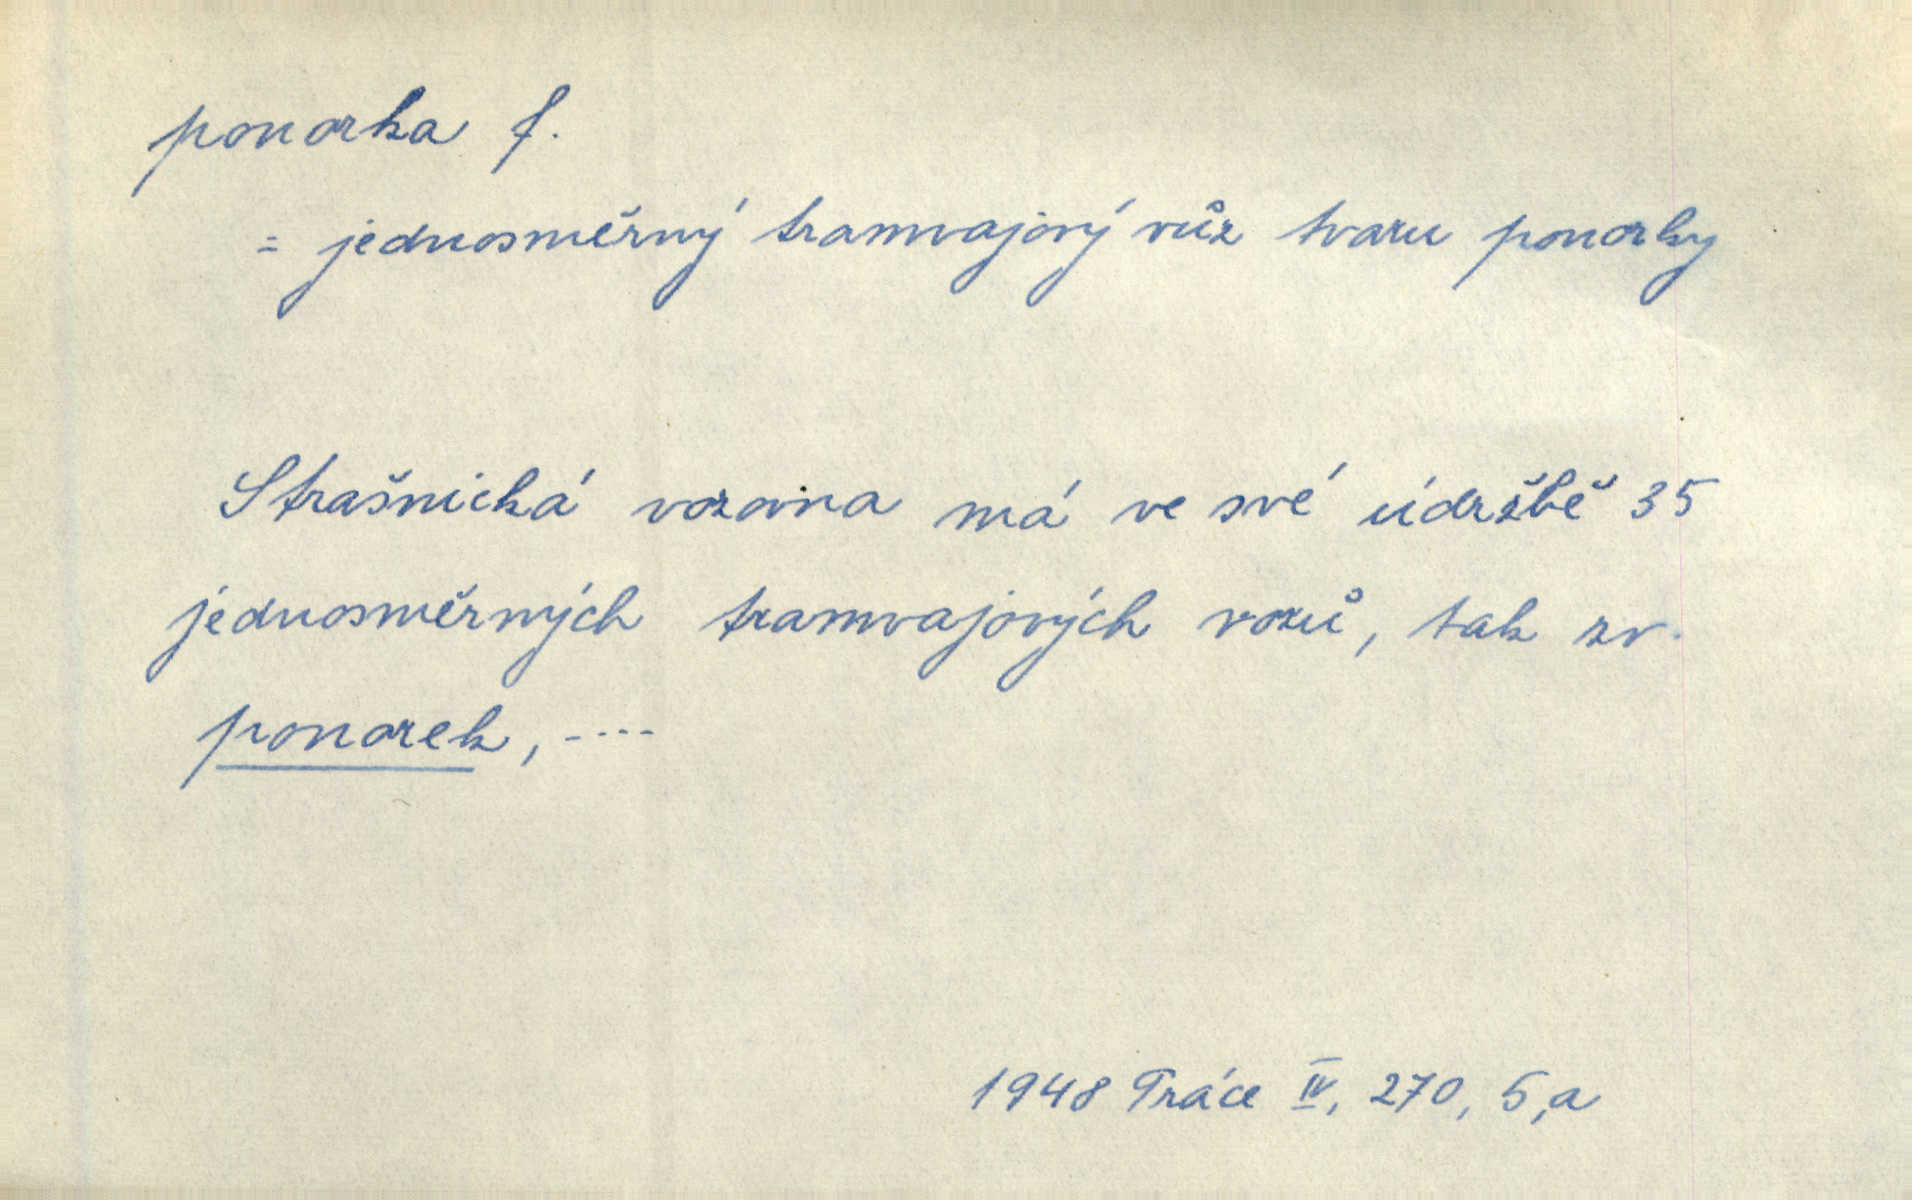 ponorka f.
= jednosměrný tramvajový vůz tvaru ponorky
Strašnická vozovna má ve své údržbě 35
jednosměrných tramvajových vozů, tak zv.
ponorek, ----
1948 Práce IV, 270, 5,a